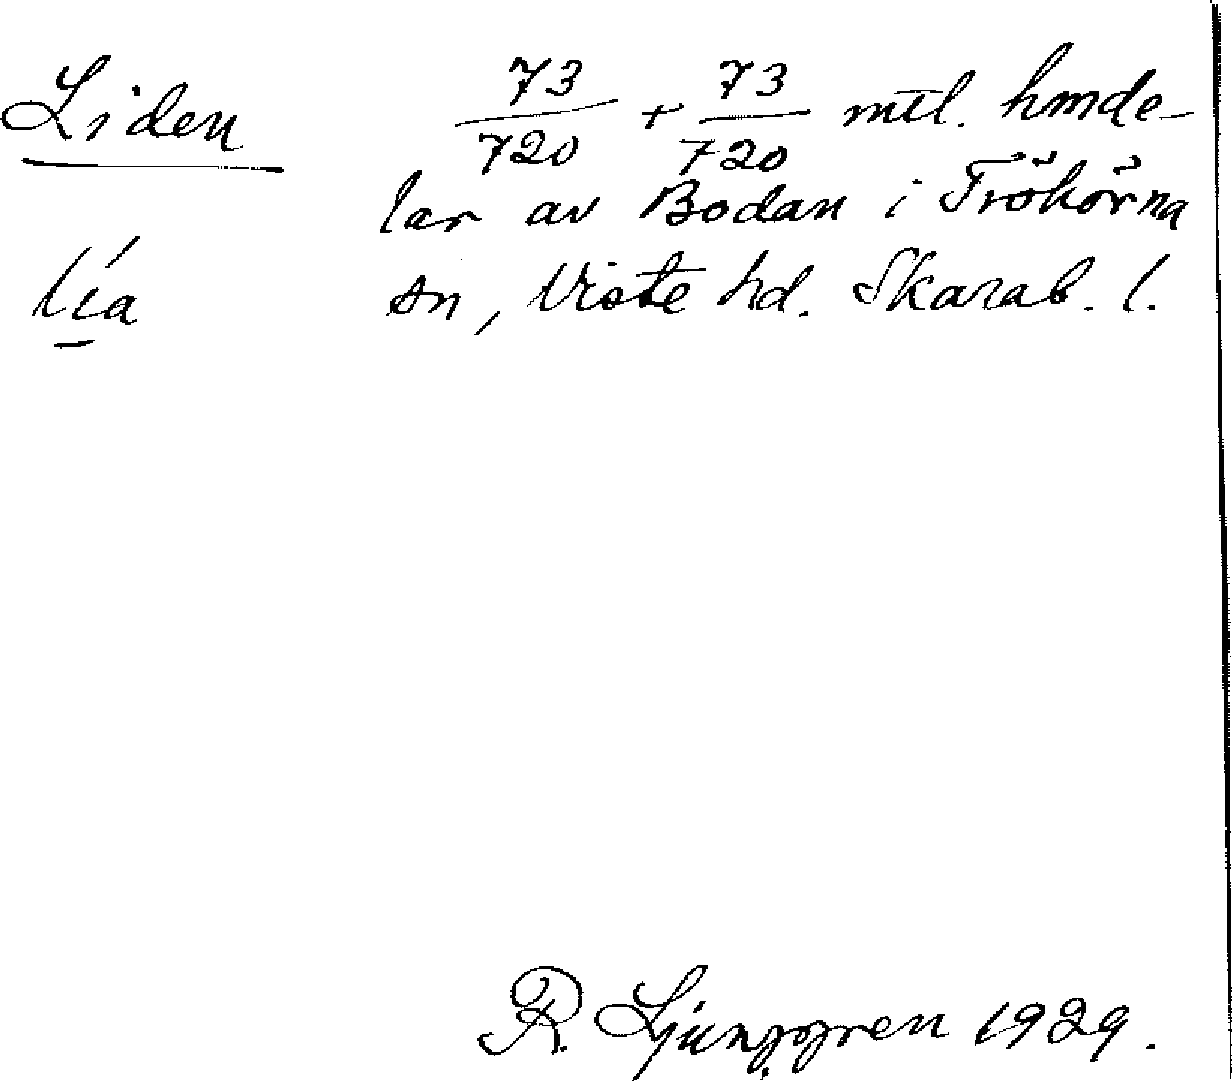 Liden 73/720 + 73/720 mtl. hmde-
lar av Bodan i Trökörna
lía sn, Viste hd. Skarab. l.
R. Ljunggren 1929.